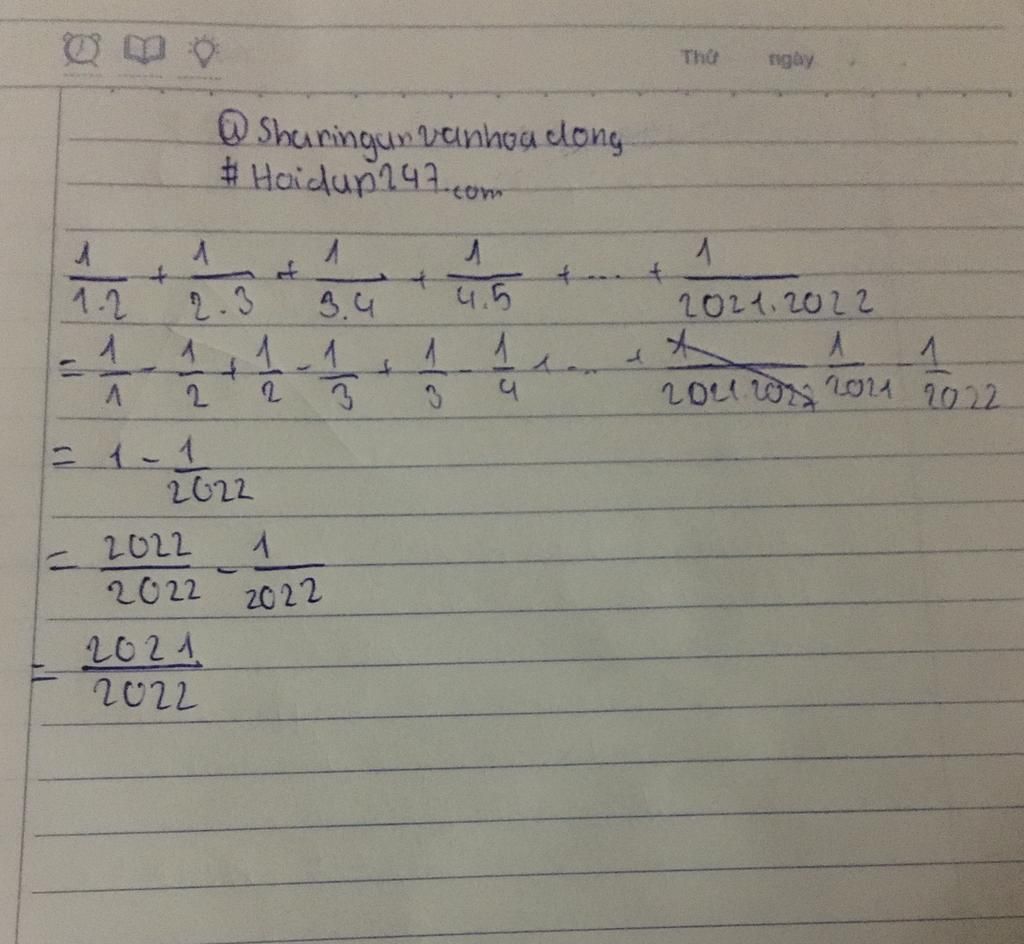 Thứ ngày
@Sharinganvanhoadong
#Hoidap247.com
1/1.2 + 1/2.3 + 1/3.4 + 1/4.5 + ... + 1/2021.2022
= 1/1 - 1/2 + 1/2 - 1/3 + 1/3 - 1/4 + ... + 1/2021.2022 1/2021 - 1/2022
= 1 - 1/2022
= 2022/2022 - 1/2022
= 2021/2022